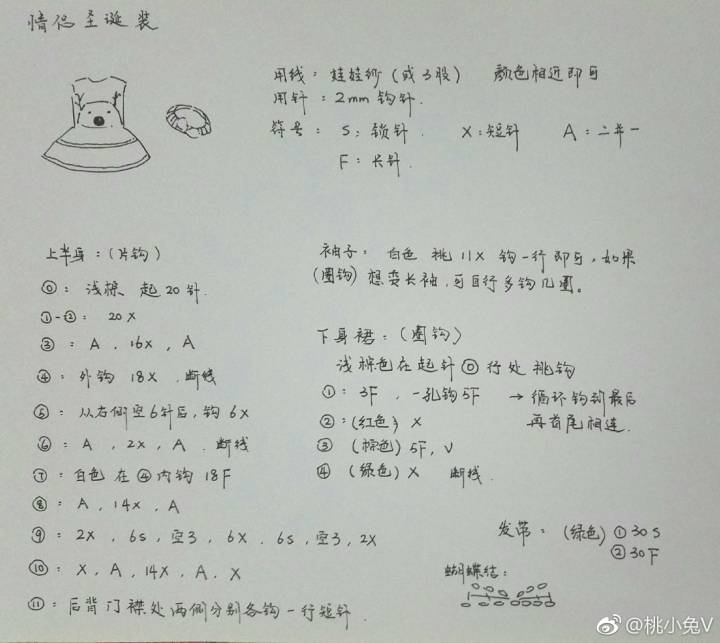 情侣圣诞装
用线：娃娃纱（或3股） 颜色相近即可
用针：2mm 钩针.
符号： S：锁针. X：短针 A：二并一
F：长针.
上半身：(片钩)
⓪：浅棕 起20针.
①-②： 20X
③：A . 16X . A
④：外钩 18X . 断线
⑤：从右侧空6针后，钩 6X
⑥：A , 2X , A . 断线
⑦：白色 在④内钩 18F
⑧：A , 14X , A
⑨：2X , 6S , 空3 , 6X . 6S , 空3 , 2X
⑩：X , A , 14X , A . X
⑪：后背门襟处两侧分别各钩一行短针.
袖子： 白色 挑 11X 钩一行即可，如果
(圈钩) 想要长袖，可自行多钩几圈。
下身裙：(圈钩)
浅棕色在起针⓪行处挑钩
①：3F , 一孔钩5F → 循环钩到最后
再首尾相连.
②：(红色) X
③ (棕色) 5F, V
④ (绿色) X 断线.
发带： (绿色) ① 30S
② 30F
蝴蝶结：
@桃小兔V